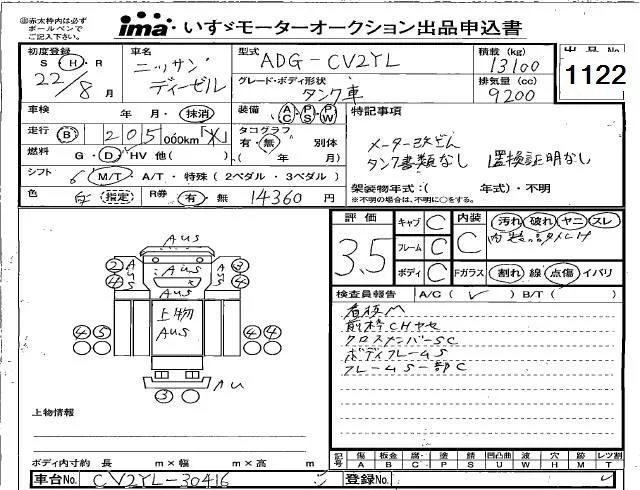 ◎赤太枠内は必ず
ボールペンで
ご記入下さい。
ima® いすゞモーターオークション出品申込書
出品No
1122
初度登録
S・Ⓗ・R
22/8 月
車名
ニッサン
ディーゼル
型式
ADG-CV2YL
グレード・ボディ形状
タンク車
積載 (kg)
13100
排気量 (cc)
9200
車検 年 月・抹消
装備 AC・PS・PW
特記事項
走行 B 205,000km「*」
タコグラフ
有・無 別体
( 年 月)
メーター改ざん
タンク書類なし 置換証明なし
燃料 G・D・HV 他( )
シフト 6 M/T・A/T・特殊(2ペダル・3ペダル)
架装物年式:( 年式)・不明
※不明の場合は、不明に○をする。
色 白 指定 R券 有・無 14360 円
評価
3.5
キャブ C
フレーム C
ボディ C
内装 C
汚れ 破れ ヤニ スレ
Fガラス 割れ 線 点傷 イバリ
検査員報告 A/C( ✓ ) B/T( )
看板M
前枠CHヤセ
クロスメンバーSC
ボディフレームS
フレームS一部C
AUS
② A ③
④ U ④
S
AUS
上物
AUS
④⑤ ④④
AU
③
上物情報
ボディ内寸約 長 m×幅 m×高 m
記号 傷 板金 腐 塗 錆 凹凸曲 波 穴 跡 レツ割
A B C P S U W H M T
車台No. CV2YL-30416
登録No.